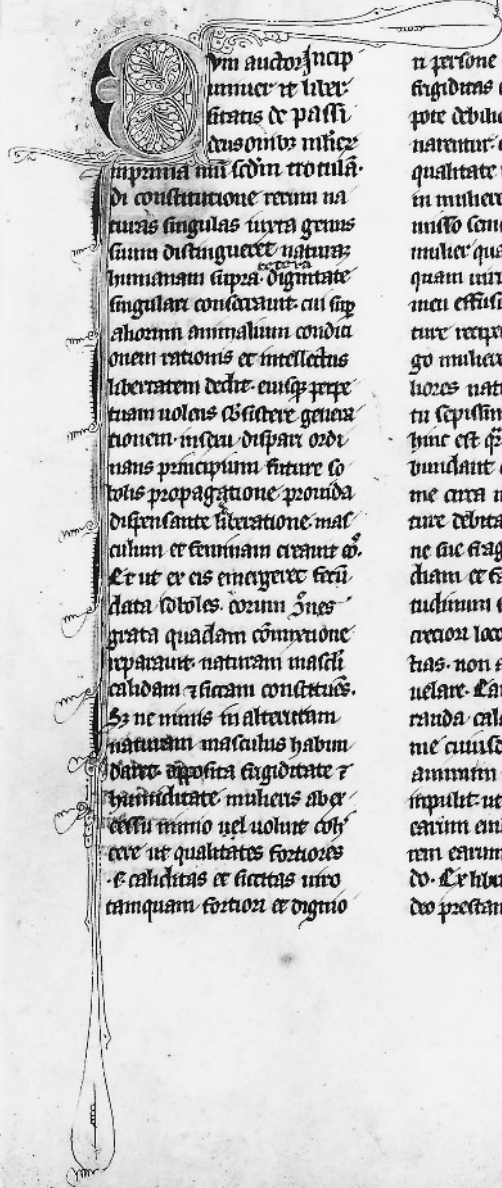 um auctor Incip
unniuer it liber
sitatis de passi
deus omibꝫ mlieꝝ
inprima mũ sedm trotulã·
di constitutione rerum na
turas singulas iuxta genus
suum distingueret naturaꝫ
cetera
humanam supra· dignitate
singulari consecrauit· cui sup
aliorum animalium condici
onem rationis et intellectus
libertatem dedit· eiusqꝫ perpe
tuam uolens sb̃sistere genera
tionem· in sexu dispari ordi
nans principium future so
bolis propagatione prouida
dispensante liberatione· mas
culum et feminam creauit
Et ut ex eis emergeret fecũ
data soboles· eorum
grata quadam cõmixtione
reparauit· naturam masculi
calidam ⁊ siccam constituẽs·
Sꝫ ne nimis in alterutram
naturam masculus habun
daret· apposita frigiditate ⁊
humiditate· mulieris ab ex
cessu nimio uel uoluit coh̾
cere ut qualitates fortiores
·s· caliditas et siccitas uiro
tamquam fortiori et digno
ri persone
frigiditas
pote debilio
narentur·
qualitate
in muliere
misso
mulier qua
quam uiri
meu effusio
ture recipe
go muliere
liores natu
tu sepissim
hinc est
bundant
me circa
ture debita
ne sue frag
diam et
tudinum
cretiori loco
tias· non a
uelare· Ea
randa cala
me cuiusd
animum
inpulit· ut
earum
tem earum
do· Ex libris
deo prestan